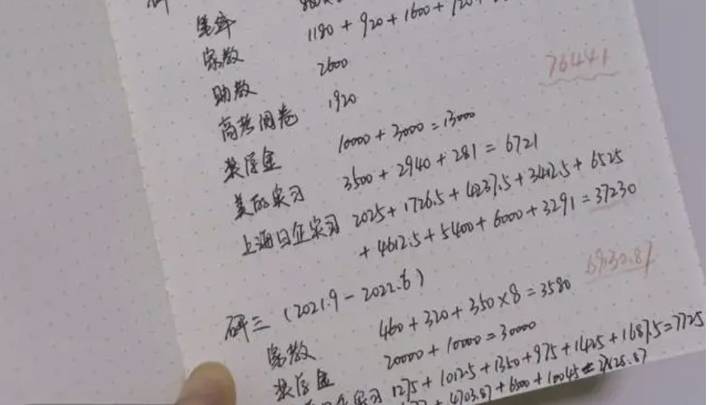 研
家教 1180 + 920 + 1600 + 720 +
助教 2600
高考阅卷 1920
奖学金 10000 + 3000 = 13000
美的实习 3500 + 2940 + 281 = 6721
上海日企实习 2025 + 1726.5 + 4237.5 + 3412.5 + 6525
+ 4612.5 + 5400 + 6000 + 3291 = 37230
76441
研三 (2021.9 - 2022.6)
69130.87
家教 460 + 320 + 350×8 = 3580
奖学金 20000 + 10000 = 30000
实习 1275 + 1012.5 + 1350 + 975 + 1425 + 1687.5 = 7725
+ 4703.87 + 6300 + 10045 =